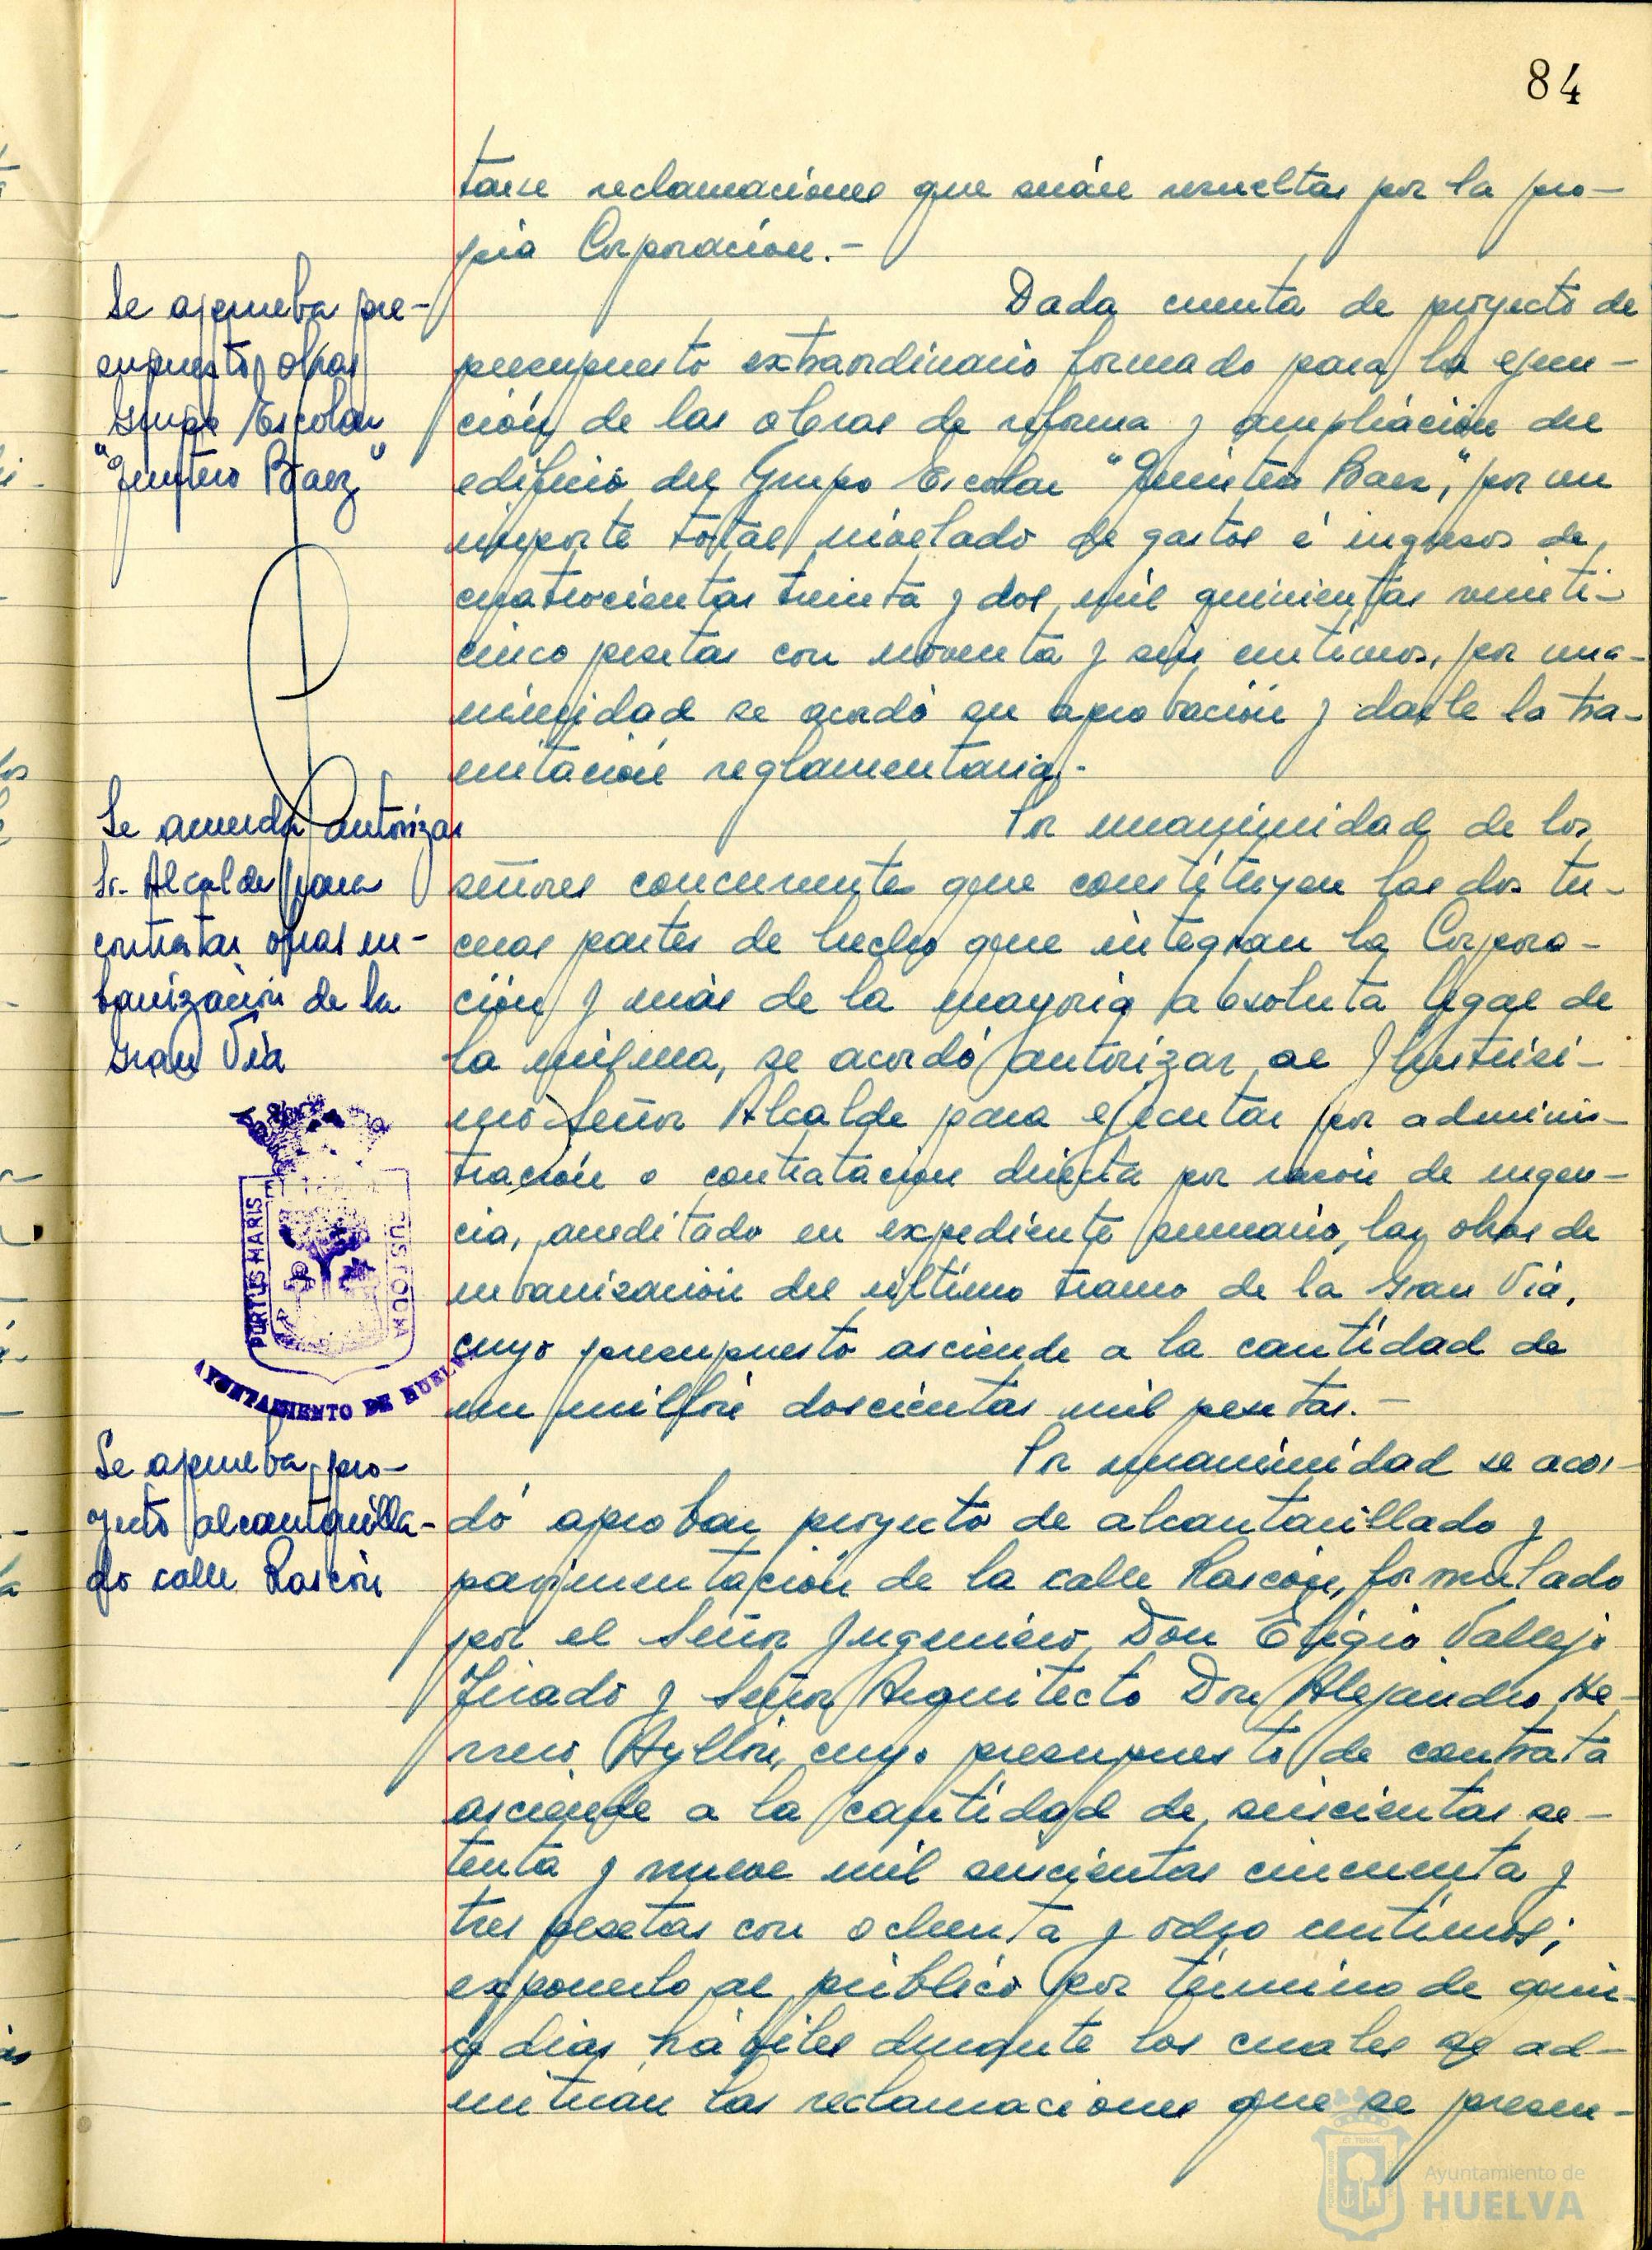 84
tarse reclamaciones que serán resueltas por la pro-
pia Corporación.-
Se aprueba pre-
supuesto obras
Grupo Escolar
"Quintero Baez"
Dada cuenta de proyecto de
presupuesto extraordinario formado para la ejecu-
ción de las obras de reforma y ampliación del
edificio del Grupo Escolar "Quintero Baez", por un
importe total nivelado de gastos é ingresos de
cuatrocientas treinta y dos mil quinientas veinti-
cinco pesetas con noventa y seis centimos, por una-
nimidad se acordó su aprobación y darle la tra-
mitación reglamentaria.-
Se acuerda autorizar
Sr. Alcalde para
contratar obras ur-
banización de la
Gran Vía
Por unanimidad de los
señores concurrentes que constituyen las dos ter-
ceras partes de hecho que integran la Corpora-
ción y más de la mayoria absoluta legal de
la misma, se acordó autorizar al Ilustrisi-
mo Señor Alcalde para ejecutar por adminis-
tración o contratación directa por razón de urgen-
cia, acreditado en expediente sumario, las obras de
urbanización del último tramo de la Gran Vía,
cuyo presupuesto asciende a la cantidad de
un millón doscientas mil pesetas.-
PORTUS MARIS
CUSTODIA
AYUNTAMIENTO DE HUELVA
Se aprueba pro-
yecto alcantarilla-
do calle Rascón
Por unanimidad se acor-
dó aprobar proyecto de alcantarillado y
pavimentación de la calle Rascón, formulado
por el Señor Ingeniero Don Eligio Vallejo
Jurado y Señor Arquitecto Don Alejandro He-
rrero Ayllón, cuyo presupuesto de contrata
asciende a la cantidad de seiscientas se-
tenta y nueve mil seiscientas cincuenta y
tres pesetas con ochenta y ocho centimos;
exponerlo al público por término de quin-
ce dias hábiles durante los cuales se ad-
mitirán las reclamaciones que se presen-
Ayuntamiento de
HUELVA